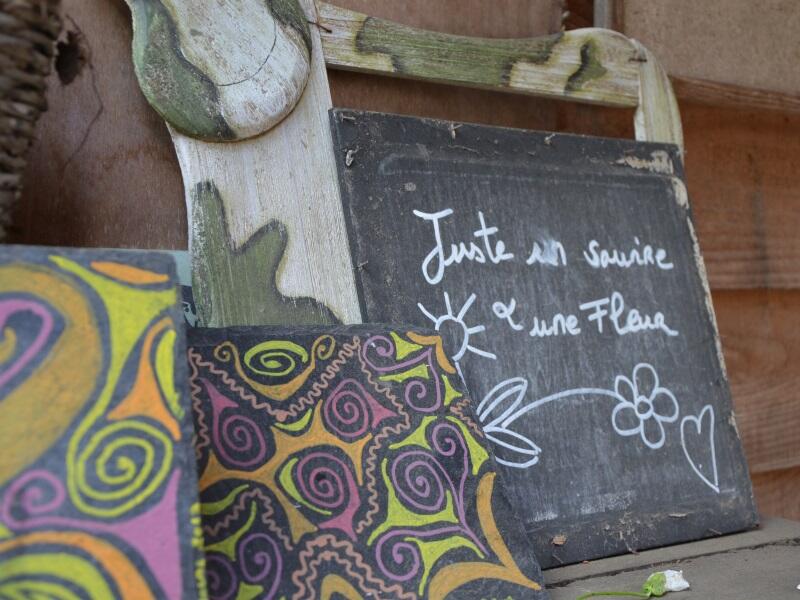 Juste un sourire
& une Fleur